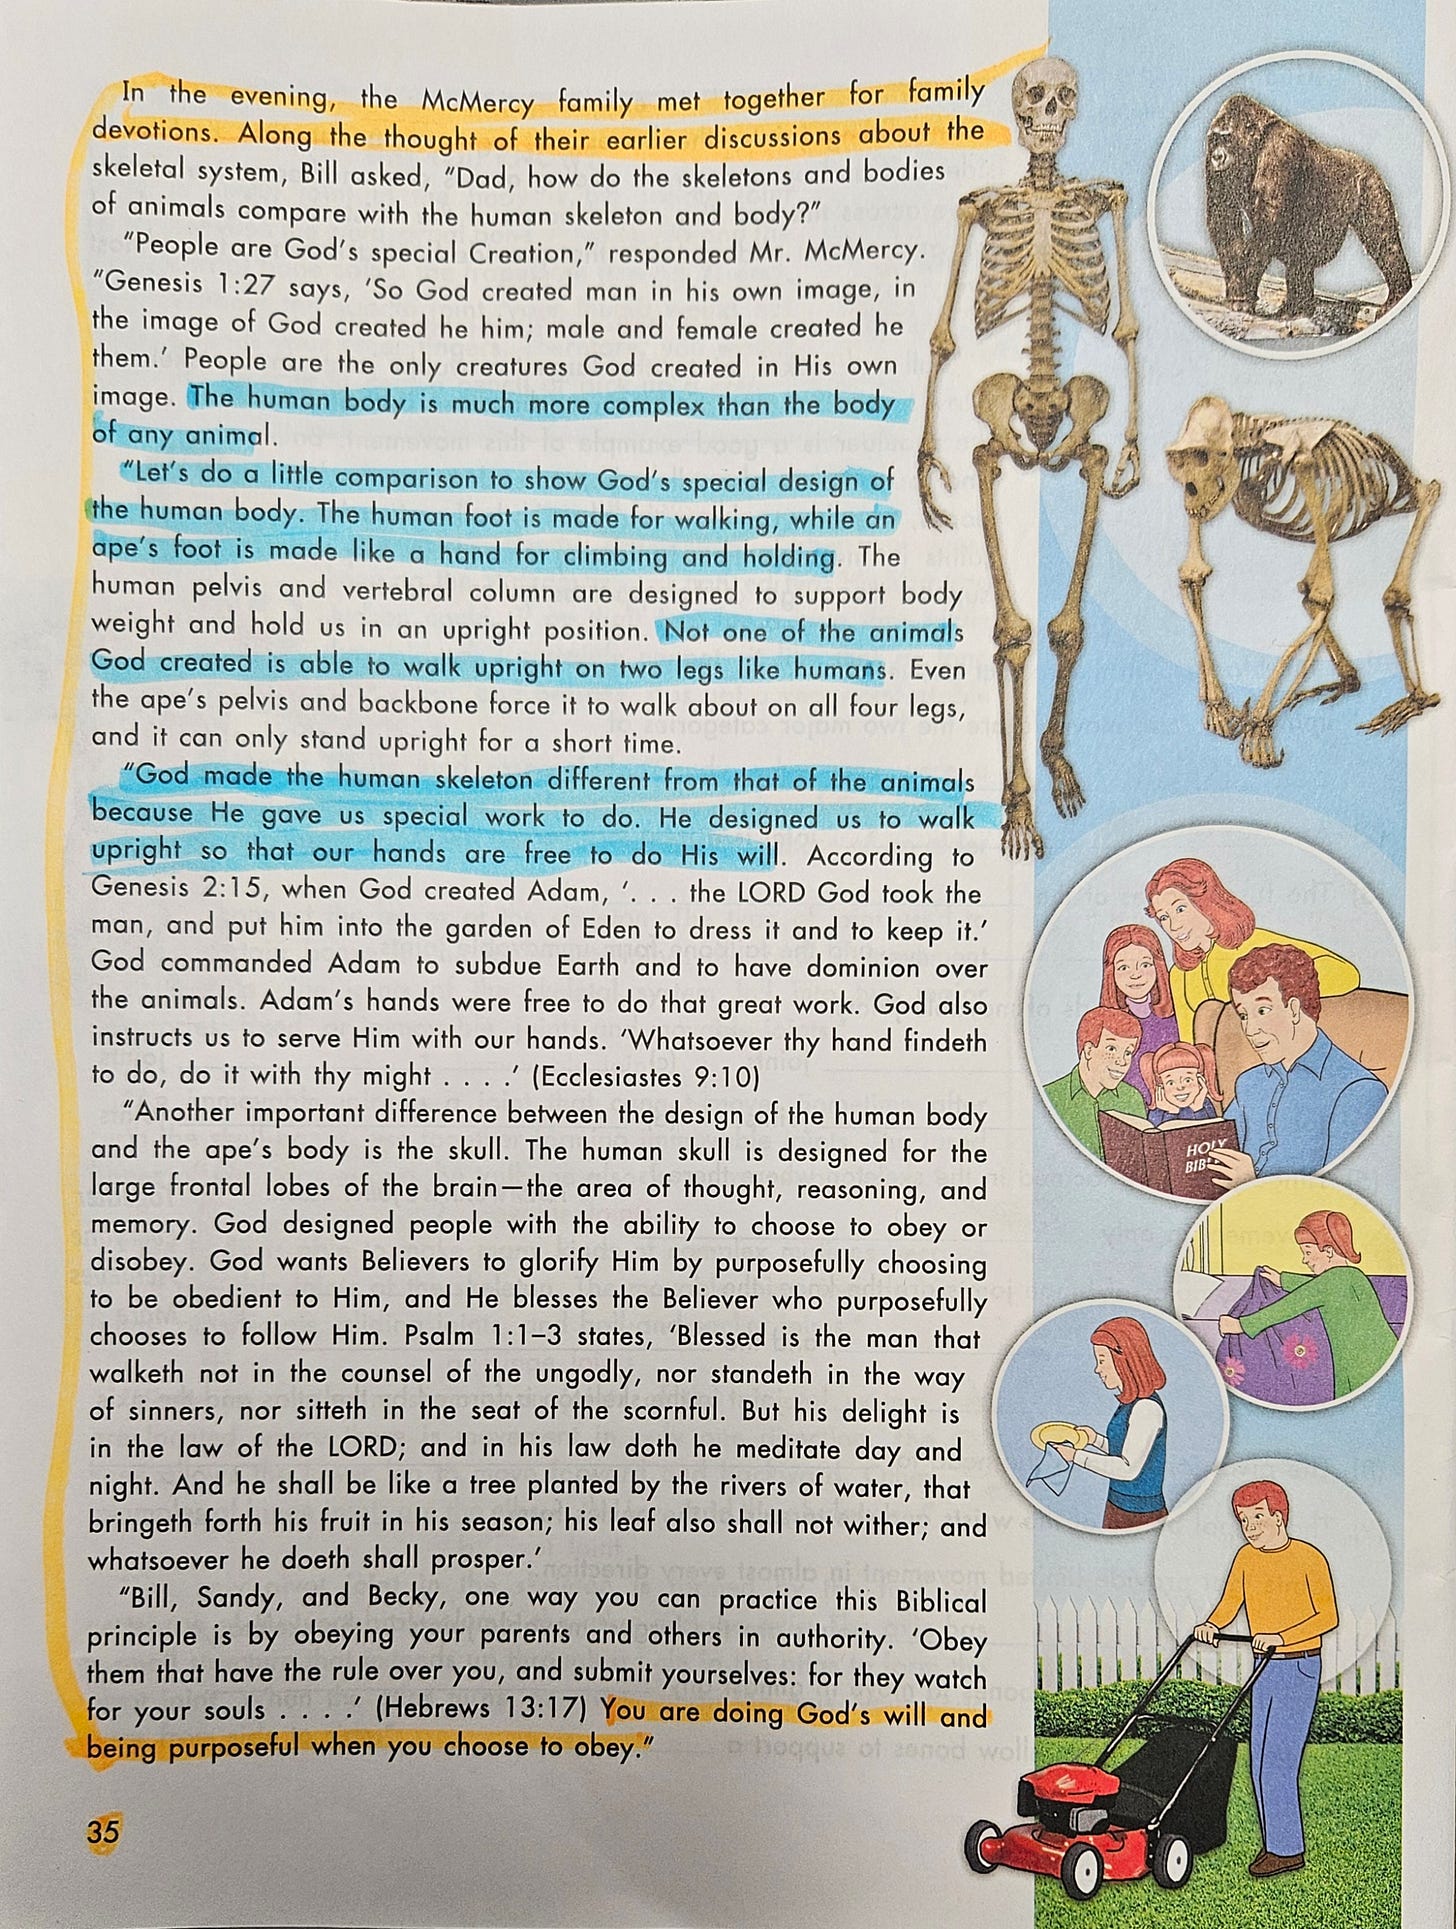 In the evening, the McMercy family met together for family
devotions. Along the thought of their earlier discussions about the
skeletal system, Bill asked, "Dad, how do the skeletons and bodies
of animals compare with the human skeleton and body?"
"People are God's special Creation," responded Mr. McMercy.
"Genesis 1:27 says, 'So God created man in his own image, in
the image of God created he him; male and female created he
them.' People are the only creatures God created in His own
image. The human body is much more complex than the body
of any animal.
"Let's do a little comparison to show God's special design of
the human body. The human foot is made for walking, while an
ape's foot is made like a hand for climbing and holding. The
human pelvis and vertebral column are designed to support body
weight and hold us in an upright position. Not one of the animals
God created is able to walk upright on two legs like humans. Even
the ape's pelvis and backbone force it to walk about on all four legs,
and it can only stand upright for a short time.
"God made the human skeleton different from that of the animals
because He gave us special work to do. He designed us to walk
upright so that our hands are free to do His will. According to
Genesis 2:15, when God created Adam, '. . . the LORD God took the
man, and put him into the garden of Eden to dress it and to keep it.'
God commanded Adam to subdue Earth and to have dominion over
the animals. Adam's hands were free to do that great work. God also
instructs us to serve Him with our hands. 'Whatsoever thy hand findeth
to do, do it with thy might . . . .' (Ecclesiastes 9:10)
"Another important difference between the design of the human body
and the ape's body is the skull. The human skull is designed for the
large frontal lobes of the brain—the area of thought, reasoning, and
memory. God designed people with the ability to choose to obey or
disobey. God wants Believers to glorify Him by purposefully choosing
to be obedient to Him, and He blesses the Believer who purposefully
chooses to follow Him. Psalm 1:1–3 states, 'Blessed is the man that
walketh not in the counsel of the ungodly, nor standeth in the way
of sinners, nor sitteth in the seat of the scornful. But his delight is
in the law of the LORD; and in his law doth he meditate day and
night. And he shall be like a tree planted by the rivers of water, that
bringeth forth his fruit in his season; his leaf also shall not wither; and
whatsoever he doeth shall prosper.'
"Bill, Sandy, and Becky, one way you can practice this Biblical
principle is by obeying your parents and others in authority. 'Obey
them that have the rule over you, and submit yourselves: for they watch
for your souls . . . .' (Hebrews 13:17) You are doing God's will and
being purposeful when you choose to obey."
35
HOLY